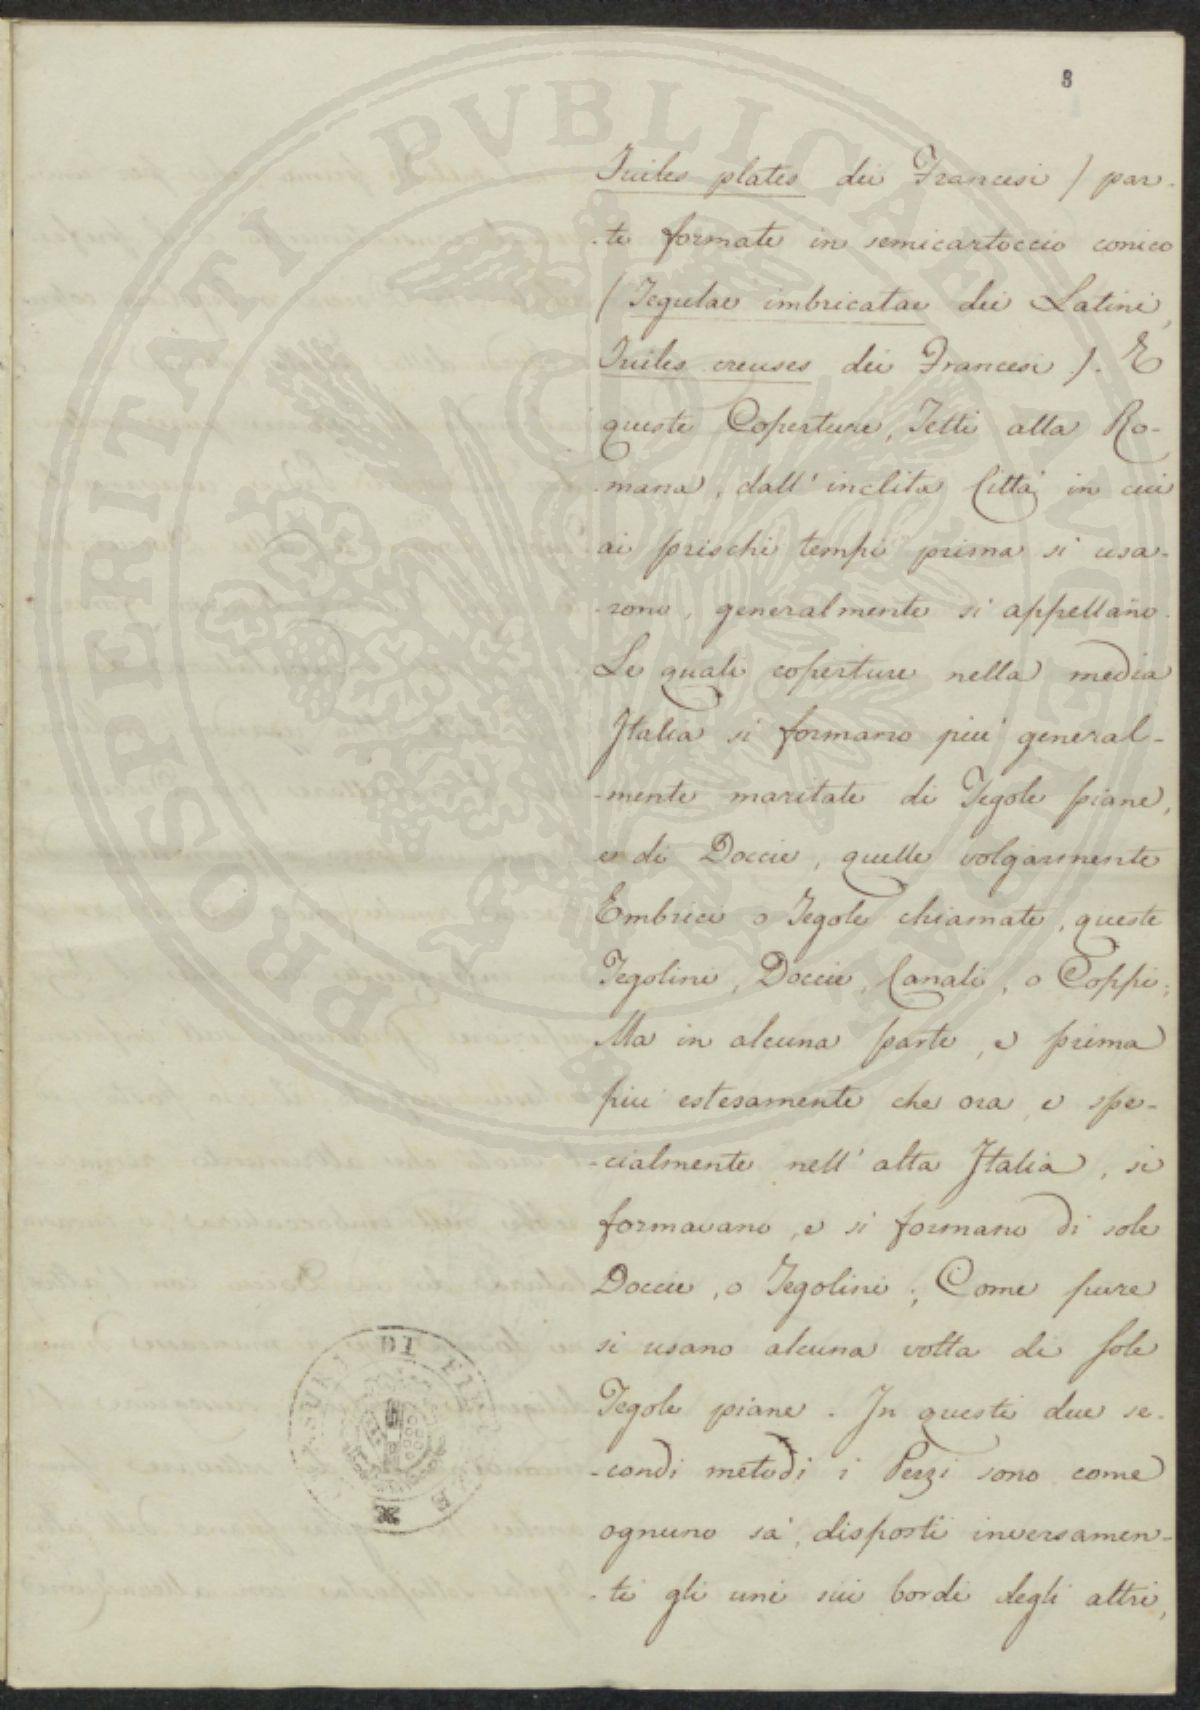 8
Tuiles plates dei Francesi ) par-
-te formate in semicartoccio conico
( Tegulae imbricatae dei Latini,
Tuiles creuses dei Francesi ). E
queste Coperture, Tetti alla Ro-
mana, dall' inclita Città in cui
ai prischi tempi prima si usa-
rono, generalmente si appellano.
Le quali coperture nella media
Italia si formano più general-
-mente maritate di Tegole piane,
e di Doccie, quelle volgarmente
Embrici o Tegole chiamate, queste
Tegolini, Doccie, Canali, o Coppi;
Ma in alcuna parte, e prima
più estesamente che ora, e spe-
-cialmente nell' alta Italia, si
formavano, e si formano di sole
Doccie, o Tegolini; Come pure
si usano alcuna volta di sole
Tegole piane. In questi due se-
-condi metodi i Pezzi sono come
ognuno sà, disposti inversamen-
-te gli uni sui bordi degli altri,
PROSPERITATI PVBLICAE AVGENDAE
DI